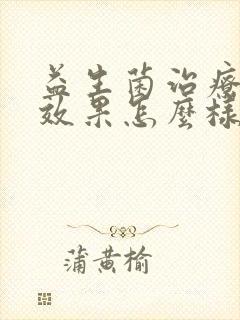 益生菌治療
效果怎麼樣
蒲黄榆